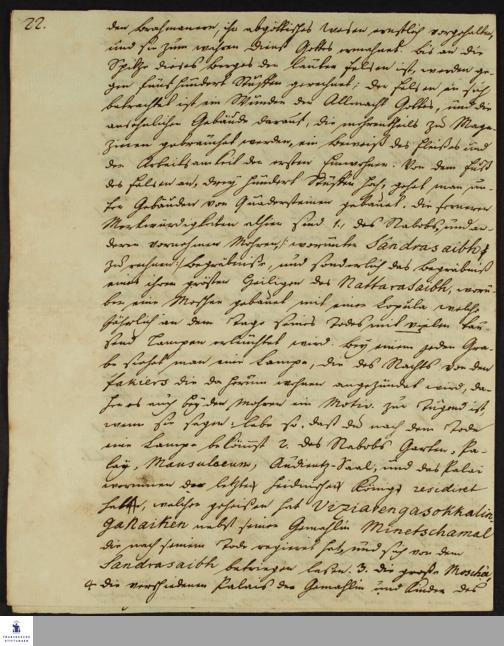 22.
den Brahmanern ihr abgöttisches Wesen ernstlich vorgehalten,
und sie zum wahren Dienst Gottes ermahnet. bis an die
Spitze dieses Berges der lauter Felsen ist, werden ge-
gen fünf hundert Stuffen gerechnet; der Felsen in sich
betrachtet ist ein Wunder der Allmacht Gottes, und die
ansehnlichen Gebäude darauf, die mehrentheils zu Maga-
zinen gebrauchet werden, ein Beweiß des Fleißes und
der Arbeitsamkeit der ersten Einwohner: Von dem Fuß
des Felsen an, drey hundert Stuffen hoch, gehet man un-
ter Gebäuden von Quadersteinen gebauet. die ferneren
Merkwürdigkeiten alhier sind 1, des Nabobs, und an-
derer vornehmen Mohren /: worunter Sandrasaibh
zu rechnen :/ Begräbniße, und sonderlich das Begräbniß
eines ihrer größten Heiligen des Nattarasaibh, worü-
ber eine Moschee gebauet mit einer Copula, welche
jährlich an dem Tage seines Todes mit vielen tau-
send Lampen erleuchtet wird. bey einem jeden Gra-
be siehet man eine Lampe, die des Nachts von den
fakiers die da herum wohnen angezündet wird, da-
her es auch bey den Mohren ein Motiv zur Tugend ist,
wenn sie sagen: lebe so, daß du nach dem Tode
eine Lampe bekömst 2. des Nabobs Garten, Pa-
lais, Mausulaeum, Audientz-Saal, und das Palai
worinnen der letzte heidnische König residiret
hat, welcher geheißen hat Viziatengasohkalin
ganaiken nebst seiner Gemahlin Minetschamal
die nach seinem Tode regieret hat, und sich von dem
Sandrasaibh betriegen laßen. 3. die große Moschee
4. die verschiedenen Palais der Gemahlin und Kinder des
FRANCKESCHE
STIFTUNGEN